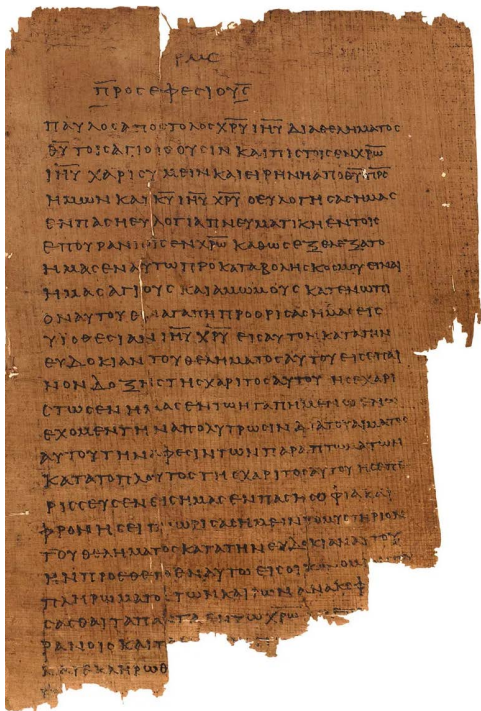 ΡΜϚ
ΠΡΟϹΕΦΕϹΙΟΥϹ
ΠΑΥΛΟϹΑΠΟϹΤΟΛΟϹΧΡΥ ΙΗΥ ΔΙΑΘΕΛΗΜΑΤΟϹ
ΘΥ ΤΟΙϹΑΓΙΟΙϹΟΥϹΙΝ ΚΑΙΠΙϹΤΟΙϹΕΝΧΡΩ
ΙΗΥ ΧΑΡΙϹΥΜΕΙΝΚΑΙΕΙΡΗΝΗΑΠΟΘΥ ΠΡϹ
ΗΜΩΝ ΚΑΙΚΥ ΙΗΥ ΧΡΥ ΟΕΥΛΟΓΗϹΑϹΗΜΑϹ
ΕΝΠΑϹΗΕΥΛΟΓΙΑΠΝΕΥΜΑΤΙΚΗΕΝΤΟΙϹ
ΕΠΟΥΡΑΝΙΟΙϹΕΝΧΡΩ ΚΑΘΩϹΕΞΕΛΕΞΑΤΟ
ΗΜΑϹΕΝΑΥΤΩΠΡΟΚΑΤΑΒΟΛΗϹΚΟϹΜΟΥΕΙΝΑΙ
ΗΜΑϹΑΓΙΟΥϹ ΚΑΙΑΜΩΜΟΥϹ ΚΑΤΕΝΩΠΙ
ΟΝΑΥΤΟΥΕΝΑΓΑΠΗΠΡΟΟΡΙϹΑϹΗΜΑϹΕΙϹ
ΥΙΟΘΕϹΙΑΝΙΗΥ ΧΡΥ ΕΙϹΑΥΤΟΝΚΑΤΑΤΗΝ
ΕΥΔΟΚΙΑΝ ΤΟΥΘΕΛΗΜΑΤΟϹΑΥΤΟΥΕΙϹΕΠΑΙ
ΝΟΝΔΟΞΗϹΤΗϹΧΑΡΙΤΟϹΑΥΤΟΥ ΗϹΕΧΑΡΙ
ϹΤΩϹΕΝ ΗΜΑϹΕΝΤΩΗΓΑΠΗΜΕΝΩΕΝΩ
ΕΧΟΜΕΝΤΗΝΑΠΟΛΥΤΡΩϹΙΝΔΙΑΤΟΥΑΙΜΑΤΟϹ
ΑΥΤΟΥΤΗΝΑΦΕϹΙΝΤΩΝΠΑΡΑΠΤΩΜΑΤΩΝ
ΚΑΤΑΤΟΠΛΟΥΤΟϹΤΗϹΧΑΡΙΤΟϹΑΥΤΟΥΗϹΕΠΕ
ΡΙϹϹΕΥϹΕΝΕΙϹΗΜΑϹΕΝΠΑϹΗϹΟΦΙΑΚΑΙ
ΦΡΟΝΗϹΕΙΓΝΩΡΙϹΑϹΗΜΕΙΝΤΟΜΥϹΤΗΡΙΟΝ
ΤΟΥΘΕΛΗΜΑΤΟϹΚΑΤΑΤΗΝΕΥΔΟΚΙΑΝΑΥΤΟΥ
ΗΝΠΡΟΕΘΕΤΟΕΝΑΥΤΩΕΙϹΟΙΚΟΝΟΜΙΑΝ
ΠΛΗΡΩΜΑΤΟϹΤΩΝΚΑΙΡΩΝΑΝΑΚΕΦ
ϹΑϹΘΑΙΤΑΠΑΝΤΑΕΝΤΩΧΡΩ
ΡΑΝΟΙϹ ΚΑΙΤ
ΕΚΛΗΡΩΘ